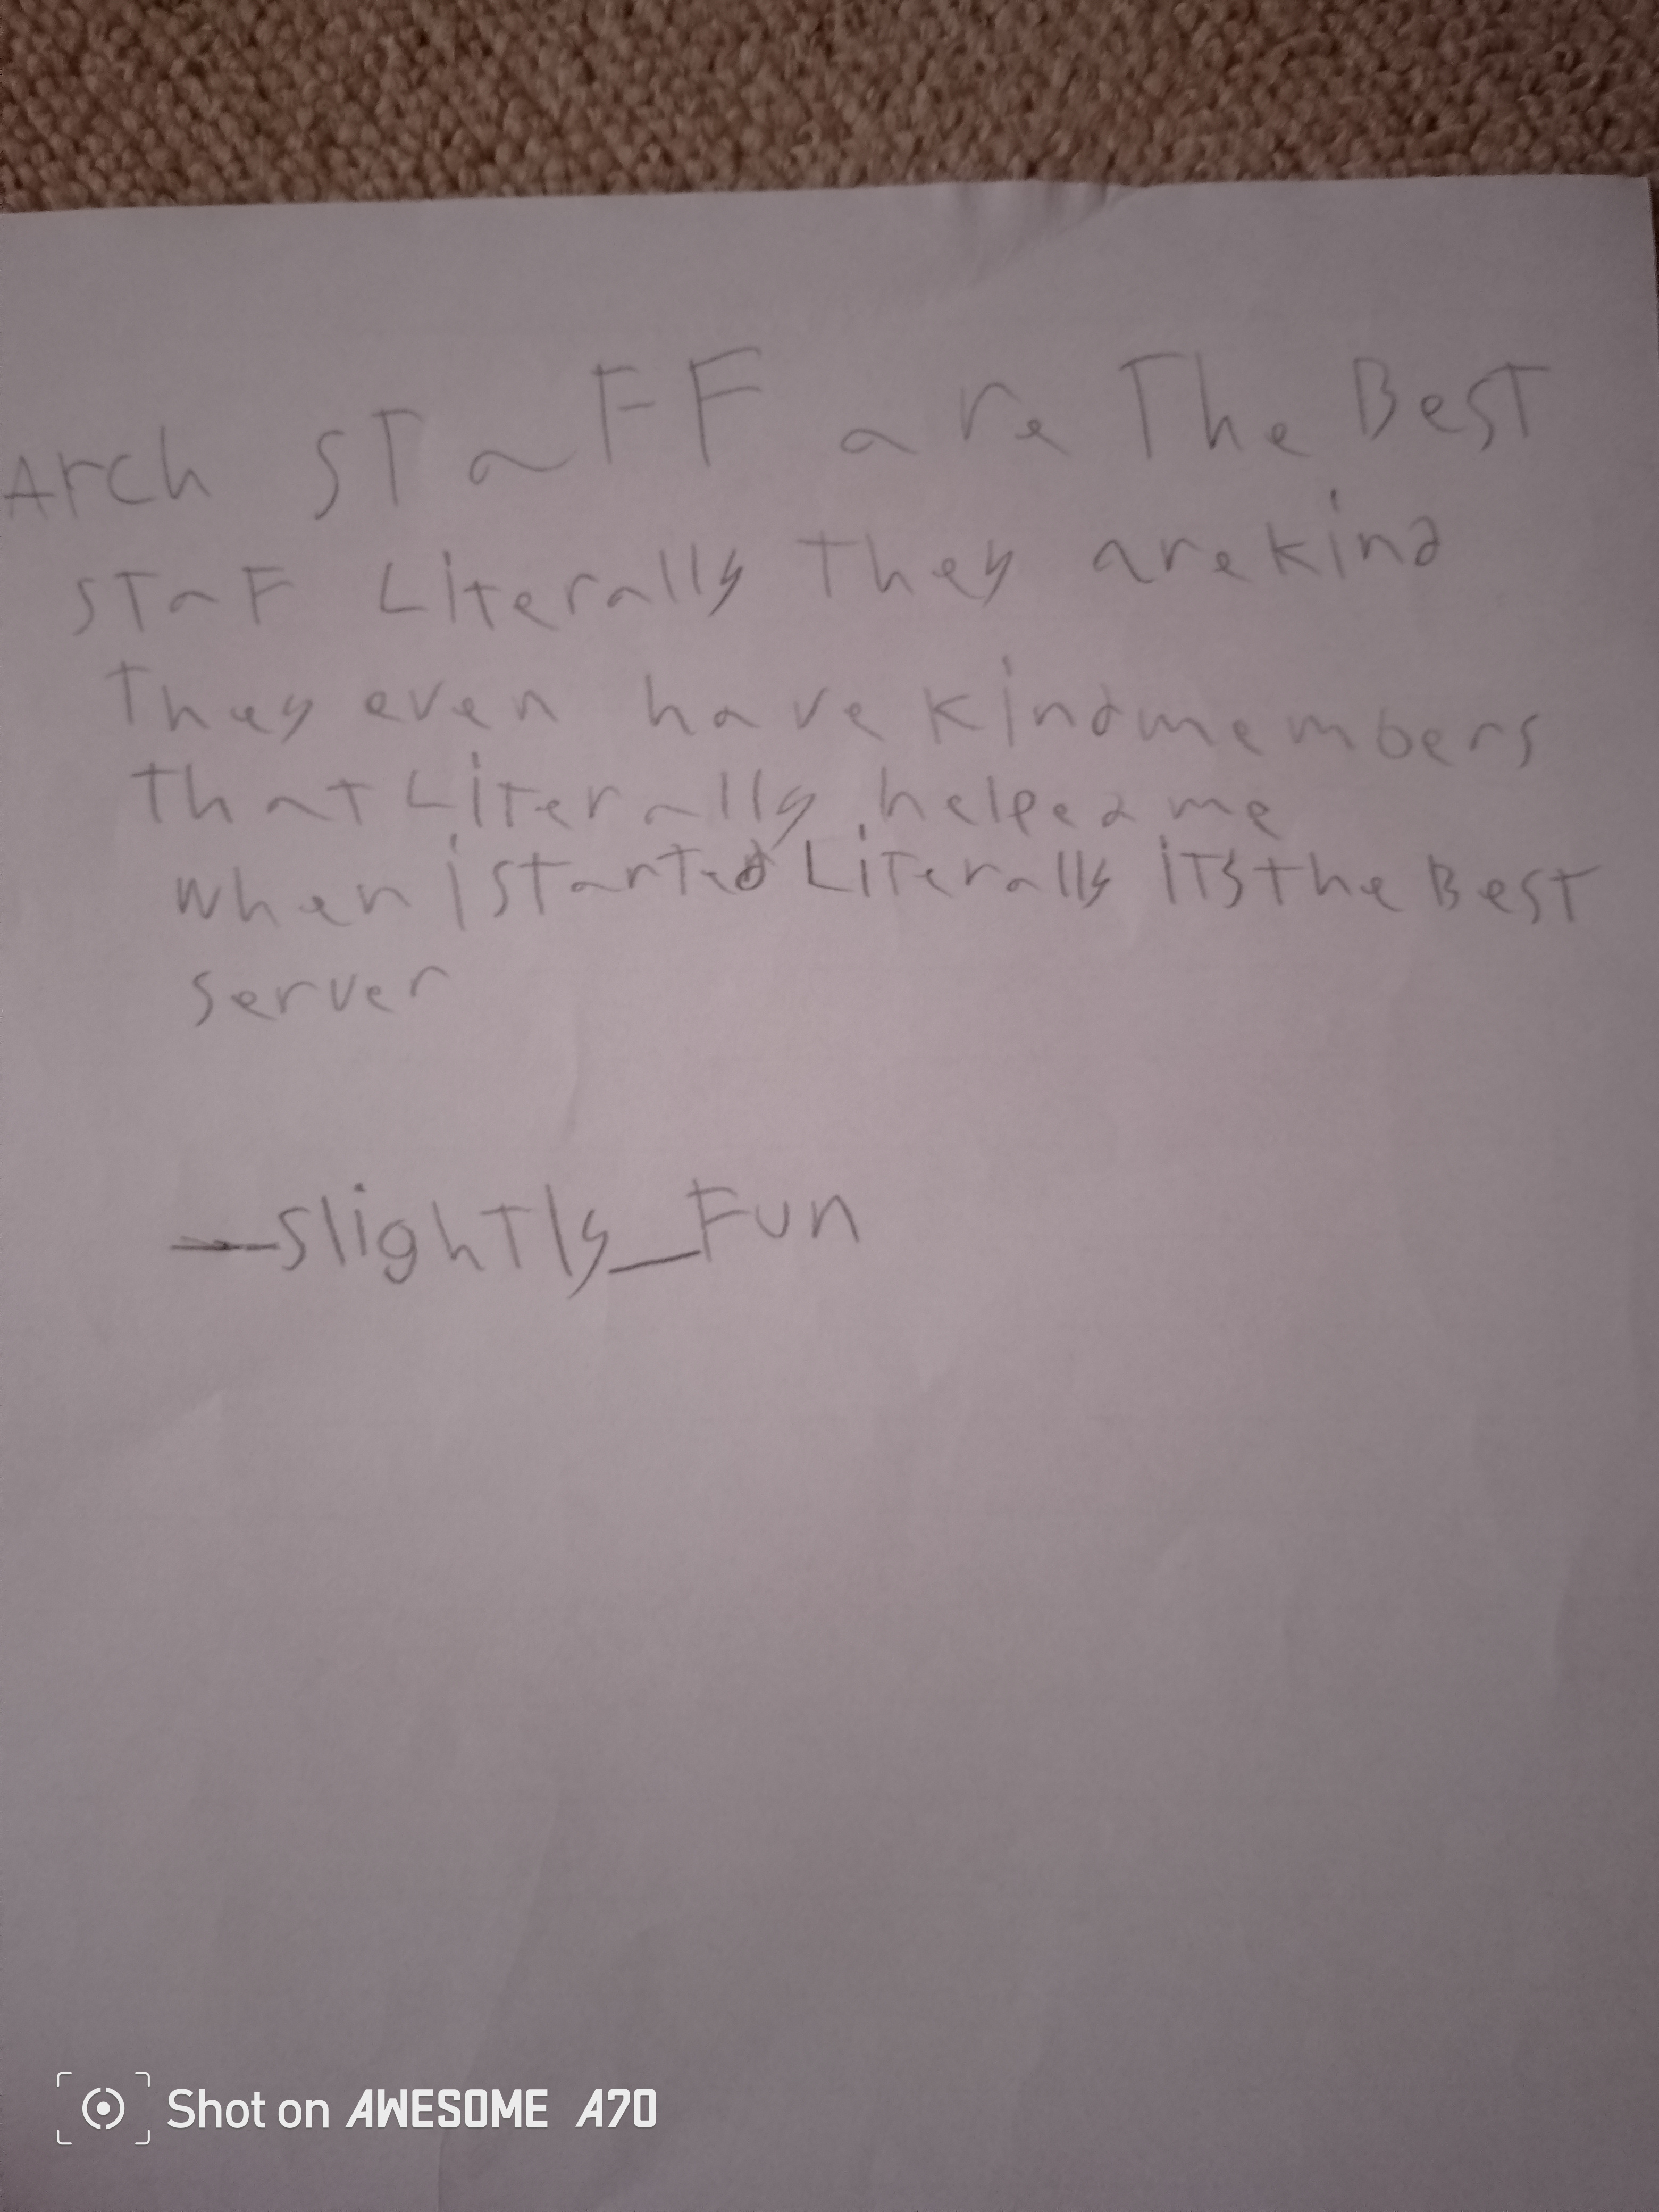 Arch STaFF are The BesT
STaF LiTerally They are kind
They even have kind members
That LiTerally helped me
when i StarTed LiTerally iTs the BesT
server
—SlighTly_Fun
Shot on AWESOME A70